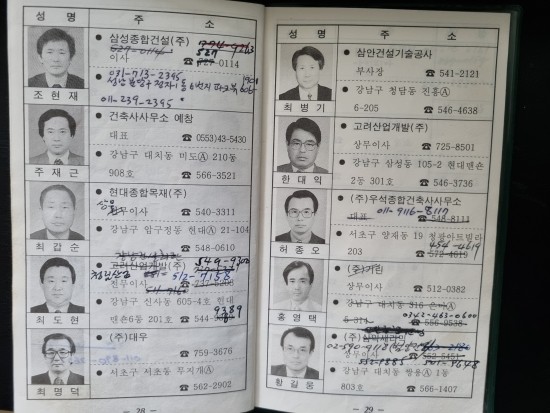 성 명 주 소
● 삼성종합건설(주) 774-9713
629-0114 527
이사 ☎ 727-0114
● 031-713-2395
조현재
011-239-2395
● 건축사사무소 예창
대표 ☎ (0553)43-5430
● 강남구 대치동 미도Ⓐ 210동
908호 ☎ 566-3521
주재근
● 현대종합목재(주)
전무이사 ☎ 540-3311
● 강남구 압구정동 현대Ⓐ 21-104
☎ 548-0610
최갑순
● 고려산업개발(주) 549-9300
512-7158
전무이사
● 강남구 신사동 605-4호 현대
맨숀6동 201호 ☎ 544- 9389
최도현
● (주)대우
☎ 759-3676
● 서초구 서초동 무지개Ⓐ
☎ 562-2902
최명덕
- 28 -
성 명 주 소
● 삼안건설기술공사
부사장 ☎ 541-2121
● 강남구 청담동 진흥Ⓐ
6-205 ☎ 546-4638
최병기
● 고려산업개발(주)
상무이사 ☎ 725-8501
● 강남구 삼성동 105-2 현대맨숀
2동 301호 ☎ 546-3736
한대익
● (주)우석종합건축사사무소
011-9116-8117
대표 ☎ 548-8111
● 서초구 양재동 19 청광아트빌라
454-4619
203 ☎ 572-4619
허종오
● (주)기린
이사 ☎ 512-0382
● 강남구 대치동 316
0342-463-0600
☎ 556-9538
홍영택
● (주)
02-590-
상무이사 ☎ 552-5451
552-5885
● 강남구 대치동 쌍용Ⓐ 1동
803호 ☎ 566-1407
황길웅
- 29 -